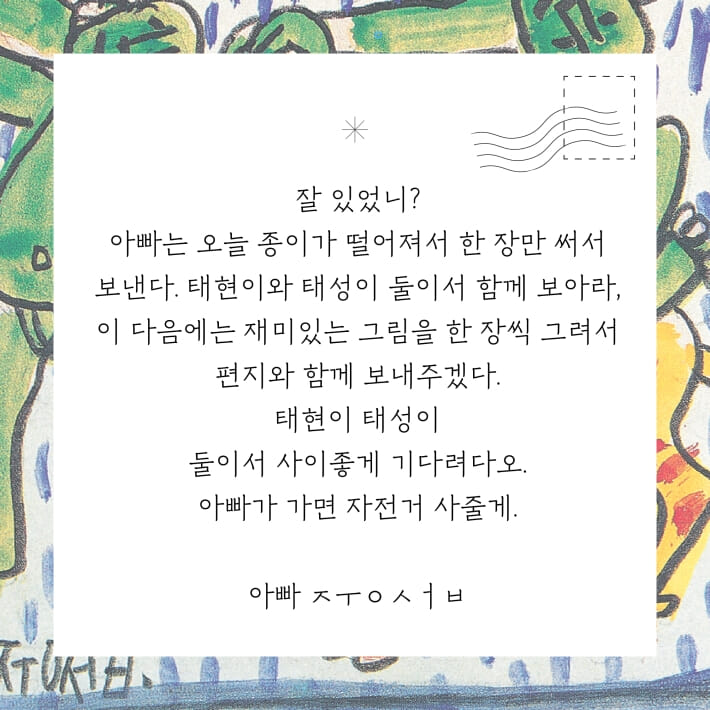 잘 있었니?
아빠는 오늘 종이가 떨어져서 한 장만 써서
보낸다. 태현이와 태성이 둘이서 함께 보아라,
이 다음에는 재미있는 그림을 한 장씩 그려서
편지와 함께 보내주겠다.
태현이 태성이
둘이서 사이좋게 기다려다오.
아빠가 가면 자전거 사줄게.
아빠 ㅈㅜㅇㅅㅓㅂ